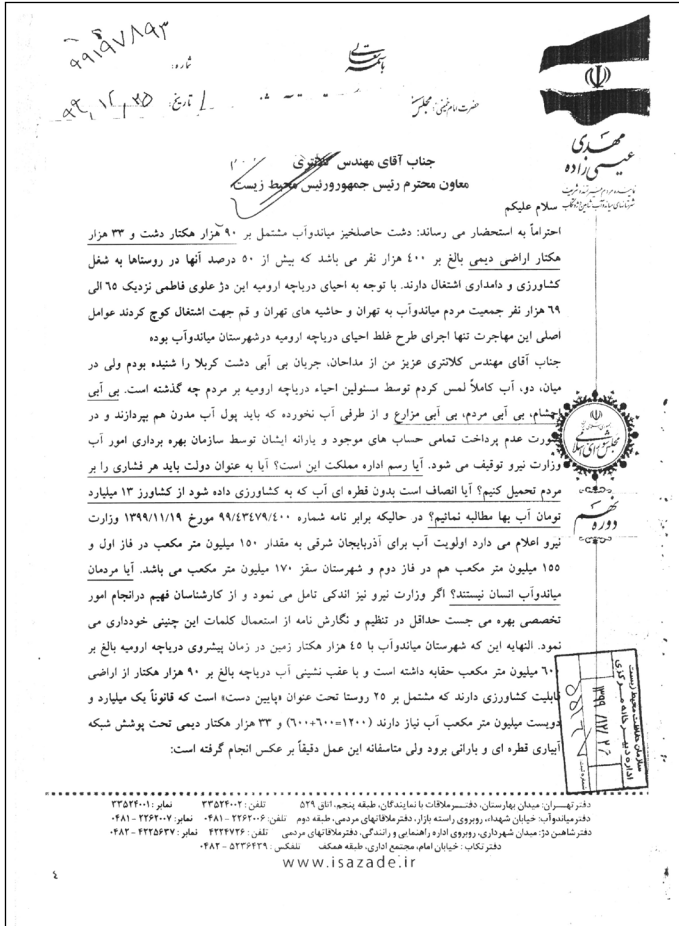 باسمه تعالی
شماره:
۹۹۱۹۷۸۹۳
تاریخ:
حضرت امام خمینی: مجلس
مهدی
عیسی زاده
جناب آقای مهندس کلانتری
معاون محترم رئیس جمهورورئیس محیط زیست
سلام علیکم
احتراماً به استحضار می رساند: دشت حاصلخیز میاندوآب مشتمل بر ۹۰ هزار هکتار دشت و ۳۳ هزار
هکتار اراضی دیمی بالغ بر ۴۰۰ هزار نفر می باشد که بیش از ۵۰ درصد آنها در روستاها به شغل
کشاورزی و دامداری اشتغال دارند. با توجه به احیای دریاچه ارومیه این دژ علوی فاطمی نزدیک ۶۵ الی
۶۹ هزار نفر جمعیت مردم میاندوآب به تهران و حاشیه های تهران و قم جهت اشتغال کوچ کردند عوامل
اصلی این مهاجرت تنها اجرای طرح غلط احیای دریاچه ارومیه درشهرستان میاندوآب بوده
جناب آقای مهندس کلانتری عزیز من از مداحان، جریان بی آبی دشت کربلا را شنیده بودم ولی در
میان، دو، آب کاملاً لمس کردم توسط مسئولین احیاء دریاچه ارومیه بر مردم چه گذشته است. بی آبی
احشام، بی آبی مردم، بی آبی مزارع و از طرفی آب نخورده که باید پول آب مدرن هم بپردازند و در
صورت عدم پرداخت تمامی حساب های موجود و یارانه ایشان توسط سازمان بهره برداری امور آب
وزارت نیرو توقیف می شود. آیا رسم اداره مملکت این است؟ آیا به عنوان دولت باید هر فشاری را بر
مردم تحمیل کنیم؟ آیا انصاف است بدون قطره ای آب که به کشاورزی داده شود از کشاورز ۱۳ میلیارد
تومان آب بها مطالبه نمائیم؟ در حالیکه برابر نامه شماره ۹۹/۴۳۴۷۹/۴۰۰ مورخ ۱۳۹۹/۱۱/۱۹ وزارت
نیرو اعلام می دارد اولویت آب برای آذربایجان شرقی به مقدار ۱۵۰ میلیون متر مکعب در فاز اول و
۱۵۵ میلیون متر مکعب هم در فاز دوم و شهرستان سقز ۱۷۰ میلیون متر مکعب می باشد. آیا مردمان
میاندوآب انسان نیستند؟ اگر وزارت نیرو نیز اندکی تامل می نمود و از کارشناسان فهیم درانجام امور
تخصصی بهره می جست حداقل در تنظیم و نگارش نامه از استعمال کلمات این چنینی خودداری می
نمود. النهایه این که شهرستان میاندوآب با ۴۵ هزار هکتار زمین در زمان پیشروی دریاچه ارومیه بالغ بر
۶۰۰ میلیون متر مکعب حقابه داشته است و با عقب نشینی آب دریاچه بالغ بر ۹۰ هزار هکتار از اراضی
قابلیت کشاورزی دارند که مشتمل بر ۲۵ روستا تحت عنوان «پایین دست» است که قانوناً یک میلیارد و
دویست میلیون متر مکعب آب نیاز دارند (۱۲۰۰=۶۰۰+۶۰۰) و ۳۳ هزار هکتار دیمی تحت پوشش شبکه
آبیاری قطره ای و بارانی برود ولی متاسفانه این عمل دقیقاً بر عکس انجام گرفته است:
مجلس شورای اسلامی
دوره نهم
سازمان حفاظت محیط زیست
اداره دبیرخانه مرکزی
دفتر تهــران: میدان بهارستان، دفتــرملاقات با نمایندگان، طبقه پنجم، اتاق ۵۲۹ تلفن: ۳۳۵۲۴۰۰۲ نمابر: ۳۳۵۲۴۰۰۱
دفتر میاندوآب: خیابان شهداء، روبروی راسته بازار، دفترملاقاتهای مردمی، طبقه دوم تلفن: ۲۲۶۲۰۰۶ - ۰۴۸۱ نمابر: ۲۲۶۲۰۰۷ - ۰۴۸۱
دفترشاهین دژ: میدان شهرداری، روبروی اداره راهنمایی و رانندگی، دفترملاقاتهای مردمی تلفن: ۴۲۲۴۷۲۶ نمابر: ۴۲۲۵۶۳۷ - ۰۴۸۲
دفتر تکاب: خیابان امام، مجتمع اداری، طبقه همکف تلفکس: ۵۲۳۶۴۲۹ - ۰۴۸۲
www.isazade.ir
٤